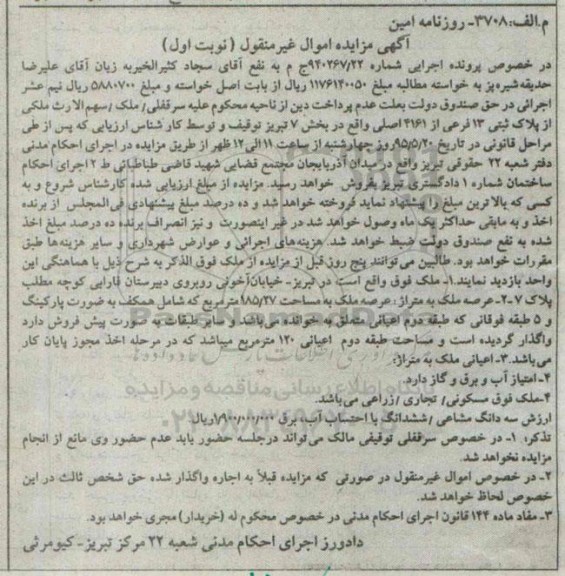 م.الف:۳۷۰۸- روزنامه امین
آگهی مزایده اموال غیرمنقول (نوبت اول)
در خصوص پرونده اجرایی شماره ۹۴۰۲۶۷/۲۲ج م به نفع آقای سجاد کثیرالخیربه زیان آقای علیرضا
حدیقه‌شیره‌پز به خواسته مطالبه مبلغ ۱۱۷۶۱۴۰۰۵۰ ریال از بابت اصل خواسته و مبلغ ۵۸۸۰۷۰۰ ریال نیم عشر
اجرائی در حق صندوق دولت بعلت عدم پرداخت دین از ناحیه محکوم علیه سرقفلی/ ملک /سهم الارث ملکی
از پلاک ثبتی ۱۳ فرعی از ۴۱۶۱ اصلی واقع در بخش ۷ تبریز توقیف و توسط کارشناس ارزیابی که پس از طی
مراحل قانونی در تاریخ ۹۵/۵/۲۰روز چهارشنبه از ساعت ۱۱ الی ۱۲ ظهر از طریق مزایده در اجرای احکام مدنی
دفتر شعبه ۲۲ حقوقی تبریز واقع در میدان آذربایجان مجتمع قضایی شهید قاضی طباطبائی ط ۲ اجرای احکام
ساختمان شماره ۱ دادگستری تبریز بفروش خواهد رسید. مزایده از مبلغ ارزیابی شده کارشناس شروع و به
کسی که بالاترین مبلغ را پیشنهاد نماید فروخته خواهد شد و ده درصد مبلغ پیشنهادی فی المجلس از برنده
اخذ و به مابقی حداکثر یک ماه وصول خواهد شد در غیر اینصورت و نیز انصراف برنده ده درصد مبلغ اخذ
شده به نفع صندوق دولت ضبط خواهد شد. هزینه‌های اجرائی و عوارض شهرداری و سایر هزینه‌ها طبق
مقررات خواهد بود. طالبین می‌توانند پنج روز قبل از مزایده از ملک فوق الذکر به شرح ذیل با هماهنگی این
واحد بازدید نمایند.۱- ملک فوق واقع است در تبریز- خیابان آخونی روبروی دبیرستان فارابی کوچه مطلب
پلاک ۷ -۲- عرصه ملک به متراژ: عرصه ملک به مساحت ۱۸۵/۲۷مترمربع که شامل همکف به صورت پارکینگ
و ۵ طبقه فوقانی که طبقه دوم اعیانی متعلق به خوانده می‌باشد و سایر طبقات به صورت پیش فروش دارد
واگذار گردیده است و مساحت طبقه دوم اعیانی ۱۲۰ مترمربع میباشد که در مرحله اخذ مجوز پایان کار
می‌باشد.۳- اعیانی ملک به متراژ:
۴-امتیاز آب و برق و گاز دارد
۴-ملک فوق مسکونی/ تجاری /زراعی می‌باشد.
ارزش سه دانگ مشاعی /ششدانگ با احتساب آب، برق ۱/۹۰۰/۰۰۰/۰۰۰ریال
تذکر: ۱- در خصوص سرقفلی توقیفی مالک می‌تواند درجلسه حضور یابد عدم حضور وی مانع از انجام
مزایده نخواهد شد.
۲- در خصوص اموال غیرمنقول در صورتی که مزایده قبلاً به اجاره واگذار شده حق شخص ثالث در این
خصوص لحاظ خواهد شد.
۳- مفاد ماده ۱۴۴ قانون اجرای احکام مدنی در خصوص محکوم له (خریدار) مجری خواهد بود.
دادورز اجرای احکام مدنی شعبه ۲۲ مرکز تبریز- کیومرثی